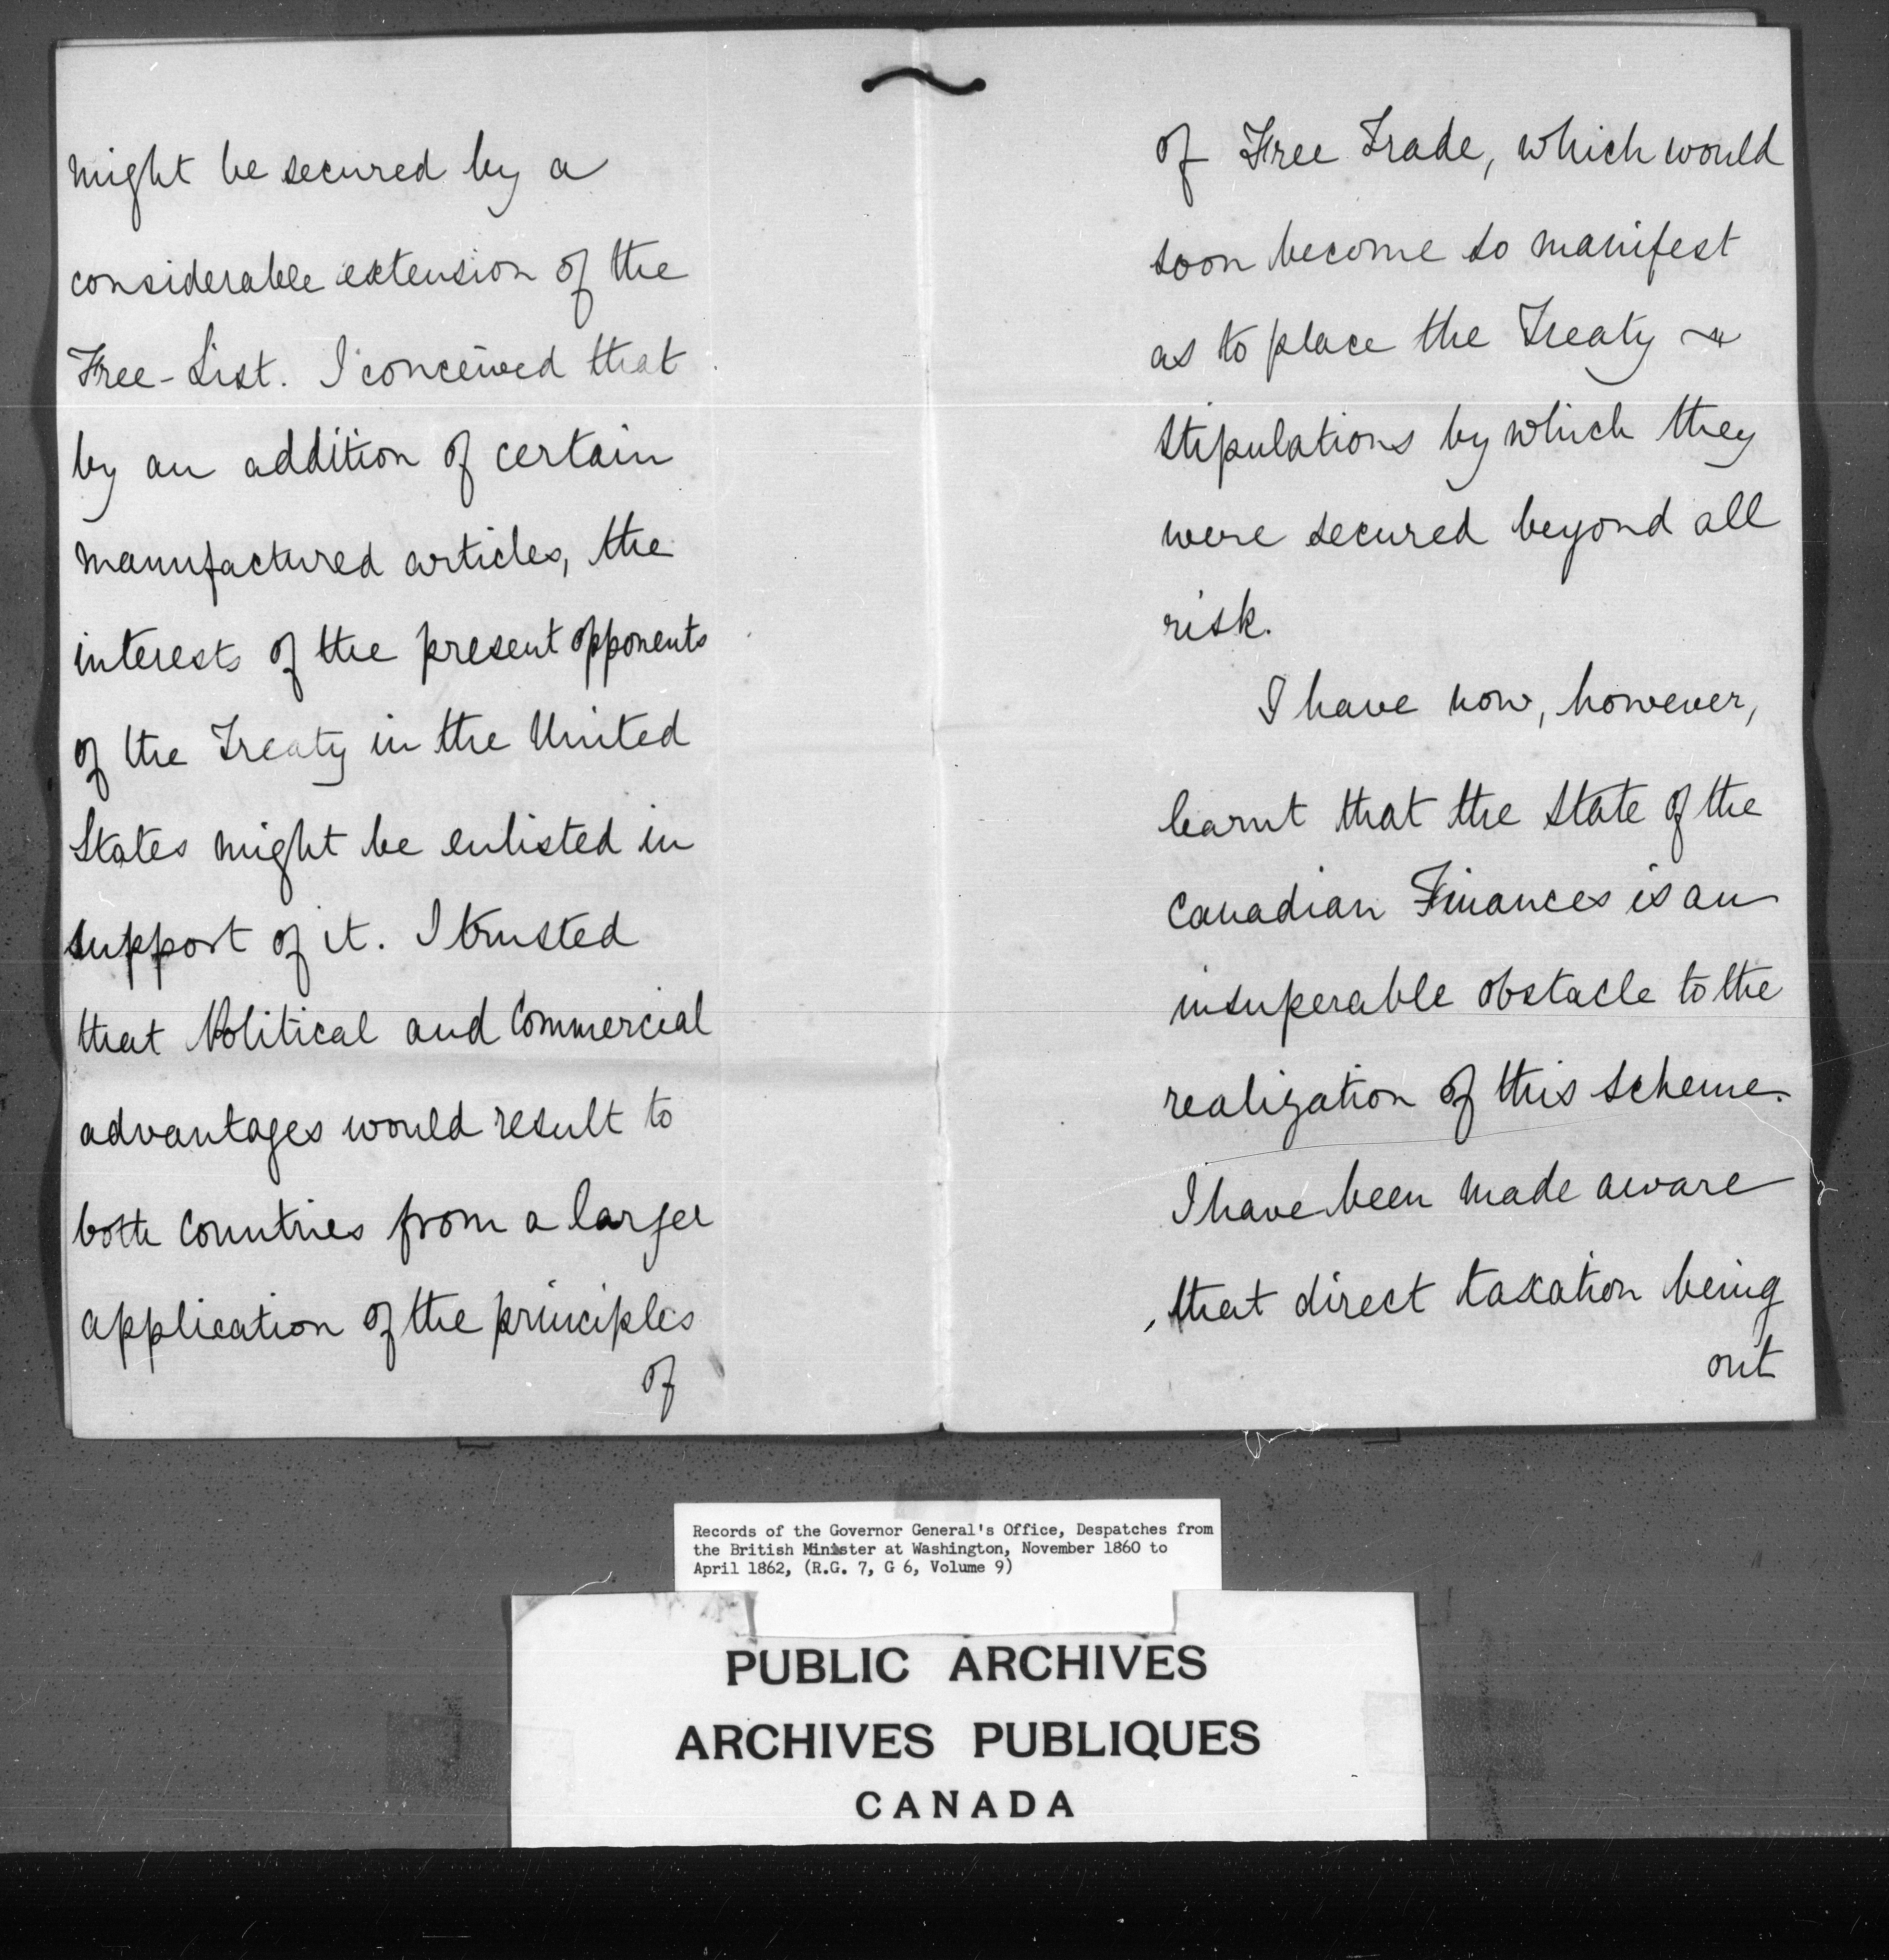 might be secured by a
considerable extension of the
Free-List. I conceived that
by an addition of certain
manufactured articles, the
interests of the present opponents
of the Treaty in the United
States might be enlisted in
support of it. I trusted
that Political and Commercial
advantages would result to
both Countries from a larger
application of the principles
of
of Free Trade, which would
soon become so manifest
as to place the Treaty &
stipulations by which they
were secured beyond all
risk.
I have now, however,
learnt that the State of the
Canadian Finances is an
insuperable obstacle to the
realization of this scheme.
I have been made aware
that direct taxation being
out
Records of the Governor General's Office, Despatches from
the British Minister at Washington, November 1860 to
April 1862, (R.G. 7, G 6, Volume 9)
PUBLIC ARCHIVES
ARCHIVES PUBLIQUES
CANADA